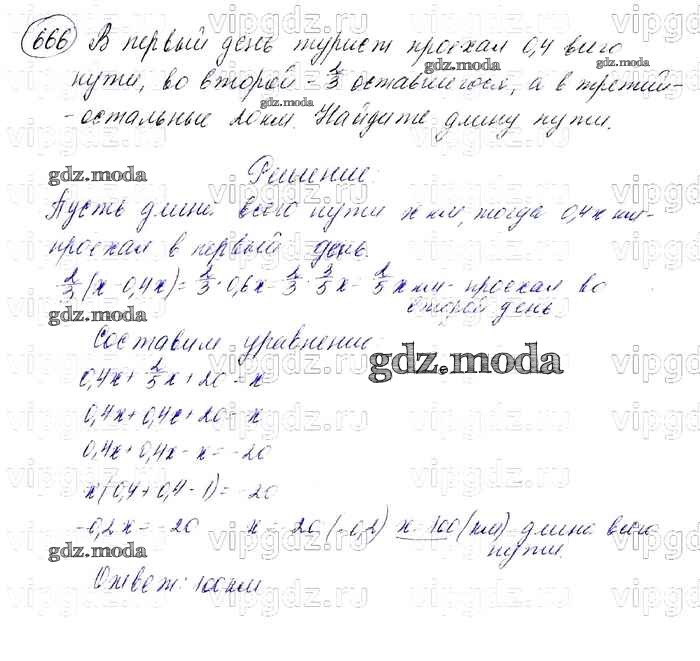 666 В первый день турист проехал 0,4 всего
пути, во второй - 2/3 оставшегося, а в третий -
- остальные 20 км. Найдите длину пути.
Решение:
Пусть длина всего пути x км, тогда 0,4x км -
проехал в первый день.
2/3 (x - 0,4x) = 2/3 · 0,6x = 2/3 · 3/5 x = 2/5 x км - проехал во
второй день
Составим уравнение:
0,4x + 2/5 x + 20 = x
0,4x + 0,4x + 20 = x
0,4x + 0,4x - x = -20
x (0,4 + 0,4 - 1) = -20
-0,2x = -20 x = -20 : (-0,2) x = 100 (км) - длина всего
пути.
Ответ: 100 км
gdz.moda
vipgdz.ru